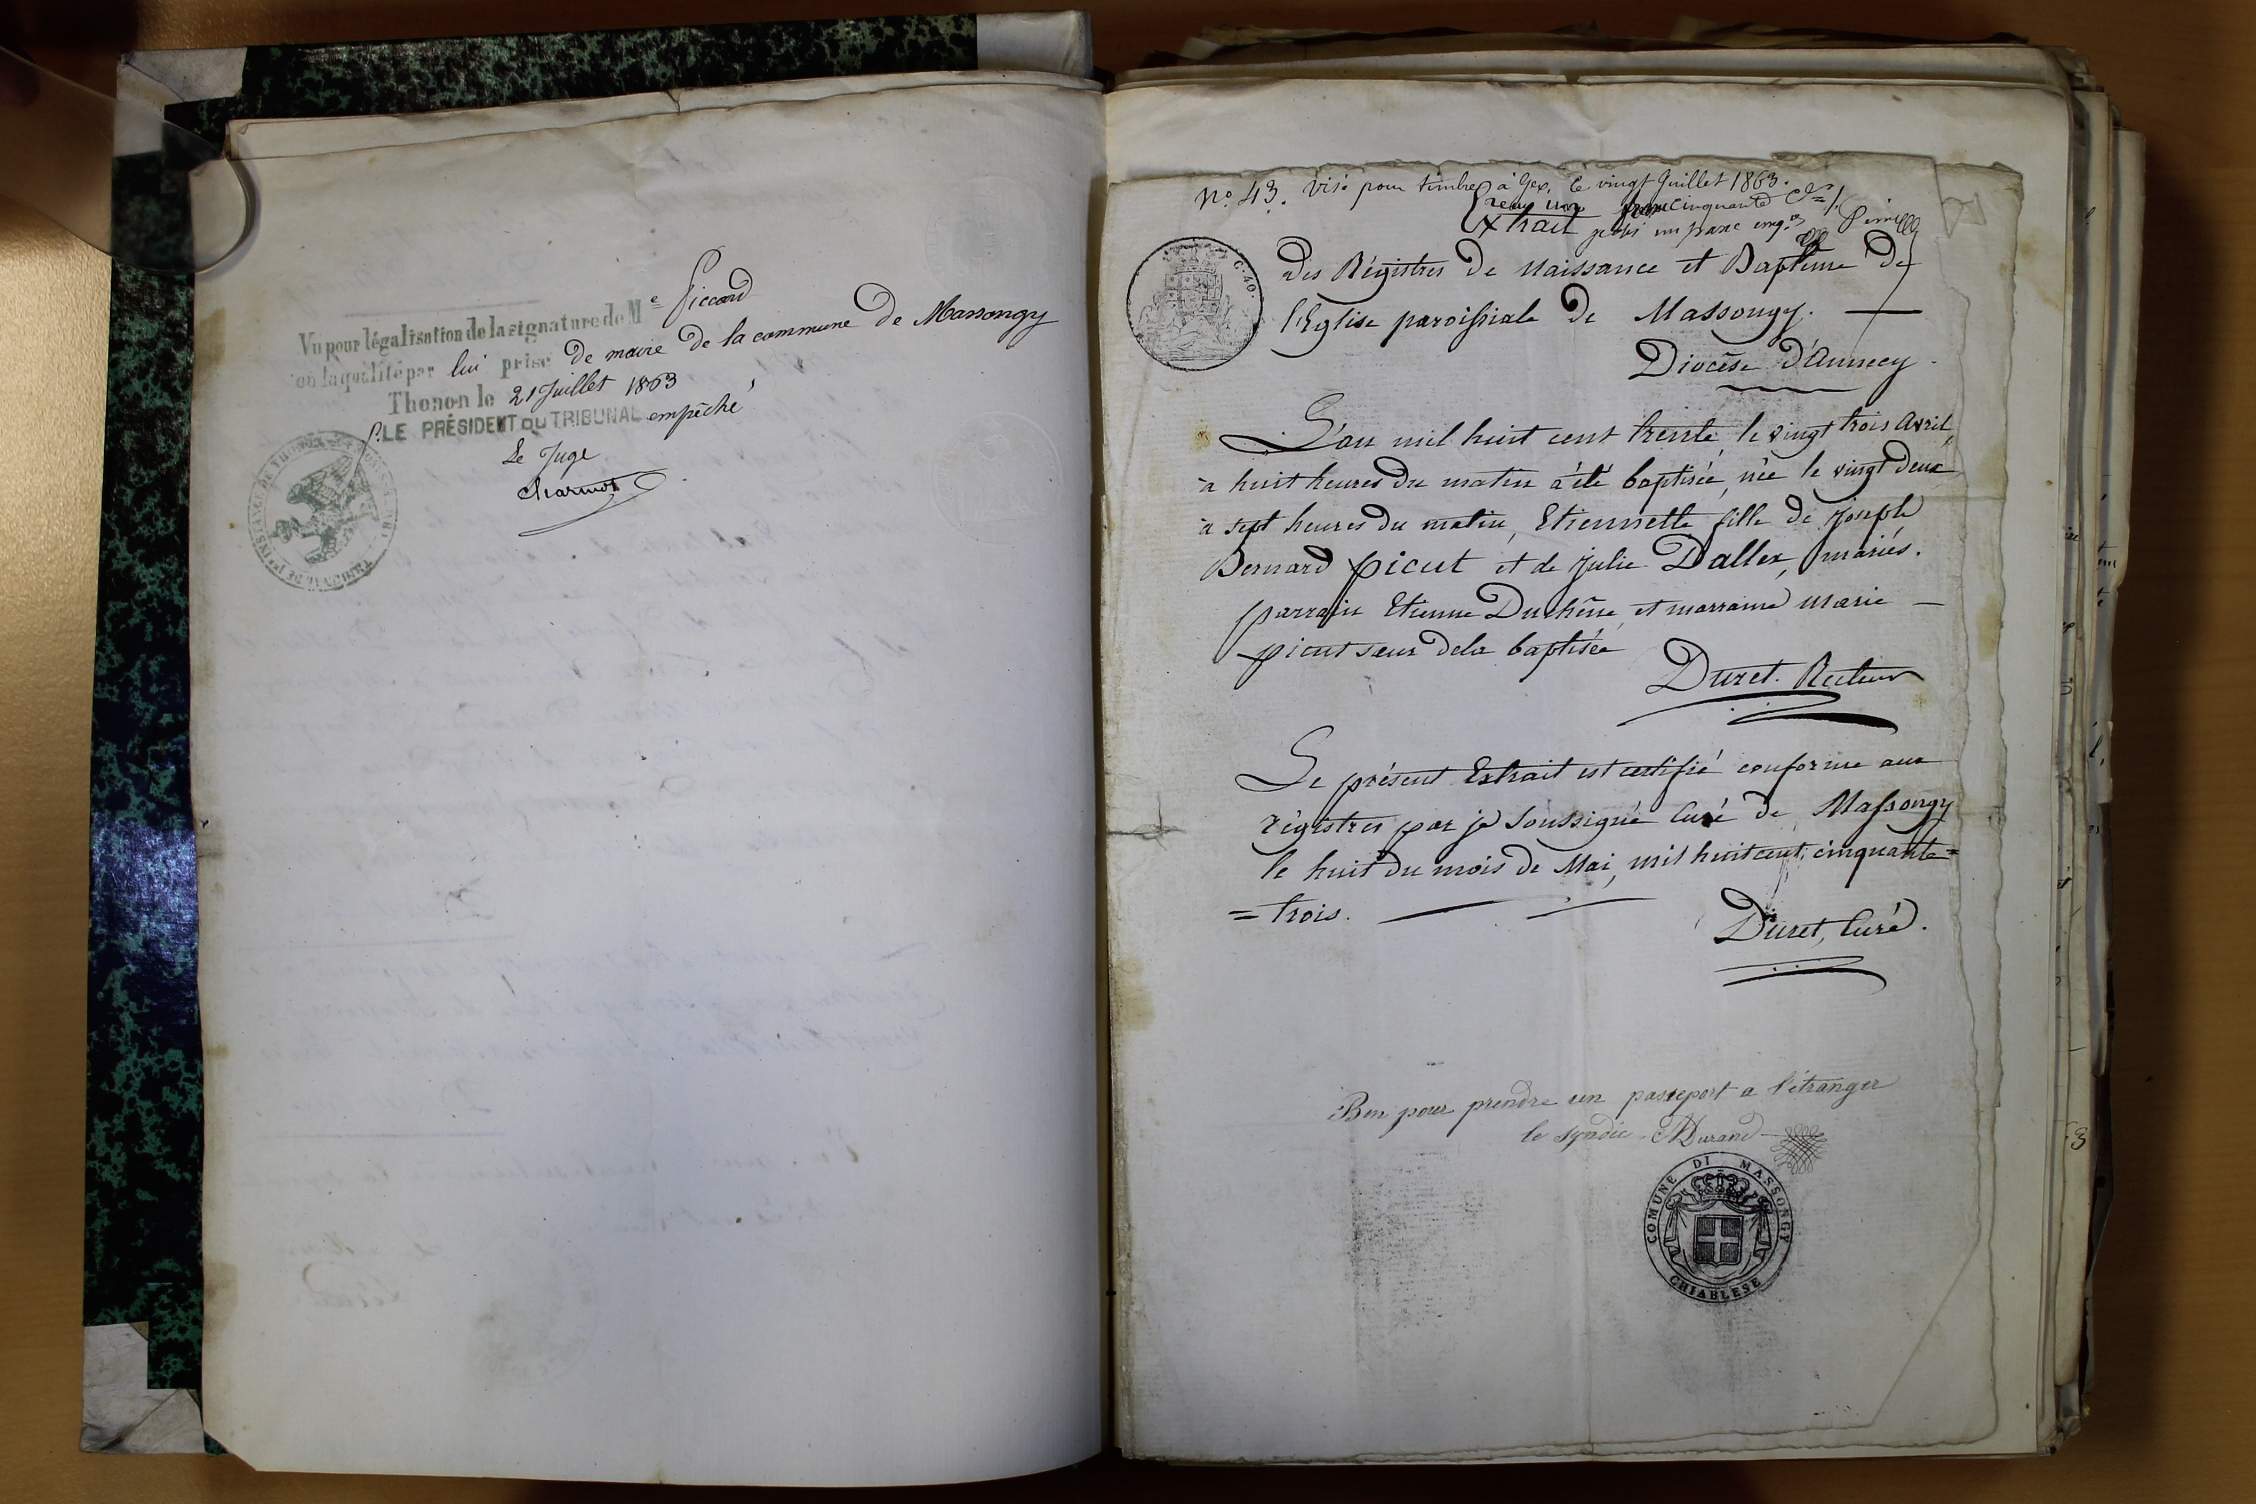 Vu pour légalisation de la signature de Me Piccard
en la qualité par lui prise de maire de la commune de Massongy
Thonon le 21 Juillet 1863
P. LE PRÉSIDENT DU TRIBUNAL empêché
Le Juge
Charmot
No. 43. Visé pour timbre à Gex, le vingt Juillet 1863.
reçu un franc cinquante
Extrait
des Régistres de Naissance et Baptême de
l'Eglise paroissiale de Massongy.
Diocèse d'Annecy.
C. 40.
L'an mil huit cent trente, le vingt trois avril,
à huit heures du matin a été baptisée, née le vingt deux
à sept heures du matin, Etiennette fille de Joseph
Bernard picut et de Julie Daller, mariés.
parrain Etienne Duchêne et marraine marie
picut sœur de la baptisée
Duret. Recteur
Le présent Extrait est certifié conforme aux
régistres par je soussigné Curé de Massongy
le huit du mois de Mai, mil huit cent cinquante=
=trois.
Duret, Curé.
Bon pour prendre un passeport a l'étranger
le syndic Durand
COMUNE DI MASSONGY
CHIABLESE